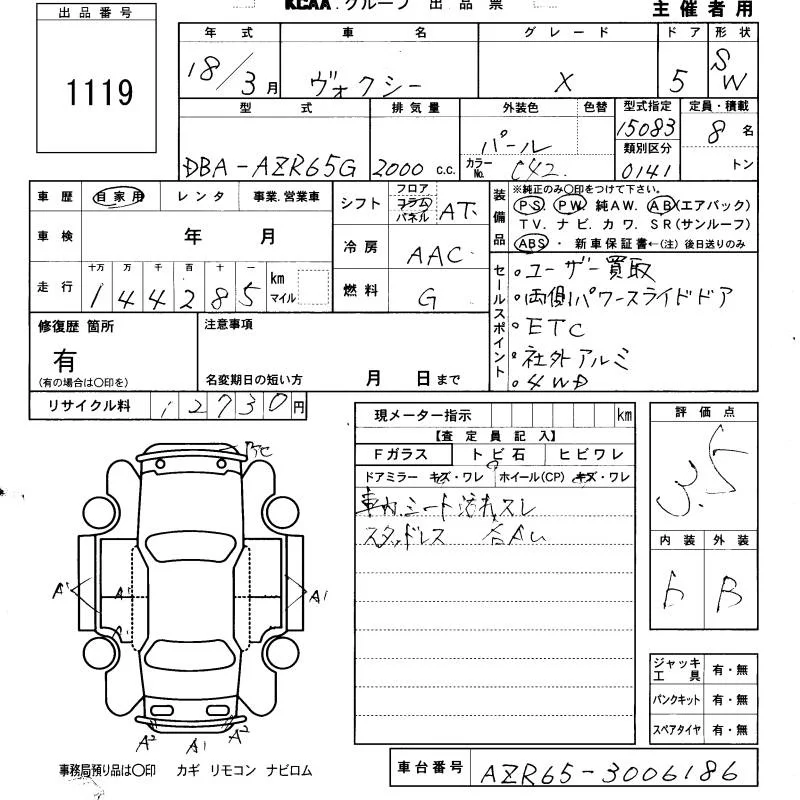 KCAA.グループ 出品票
主催者用
出品番号
1119
年式 車名 グレード ドア 形状
18/3月 ヴォクシー X 5 SW
型式 排気量 外装色 色替 型式指定 定員・積載
DBA-AZR65G 2000 c.c. パール 15083 8名
カラーNo. 042 類別区分 0141 トン
車歴 自家用 レンタ 事業.営業車
車検 年 月
走行 十万 万 千 百 十 一
144285 km マイル
シフト フロア コラム パネル AT.
冷房 AAC
燃料 G
装備品
※純正のみ〇印をつけて下さい。
PS. PW. 純AW. AB(エアバック)
TV. ナビ. カワ. SR(サンルーフ)
ABS ・ 新車保証書←(注) 後日送りのみ
セールスポイント
・ユーザー買取
・両側パワースライドドア
・ETC
・社外アルミ
・4WD
修復歴 箇所
有
(有の場合は〇印を)
注意事項
名変期日の短い方 月 日まで
リサイクル料 12730円
現メーター指示 km
【査定員記入】
Fガラス トビ石 ヒビワレ
ドアミラー キズ・ワレ ホイール(CP) キズ・ワレ
車内.シート汚れスレ
スタッドレス
評価点
3.5
内装 外装
b B
A1 A1 A1 A1
A2 A1 A2
ジャッキ工具 有・無
パンクキット 有・無
スペアタイヤ 有・無
事務局預り品は〇印 カギ リモコン ナビロム
車台番号 AZR65-3006186